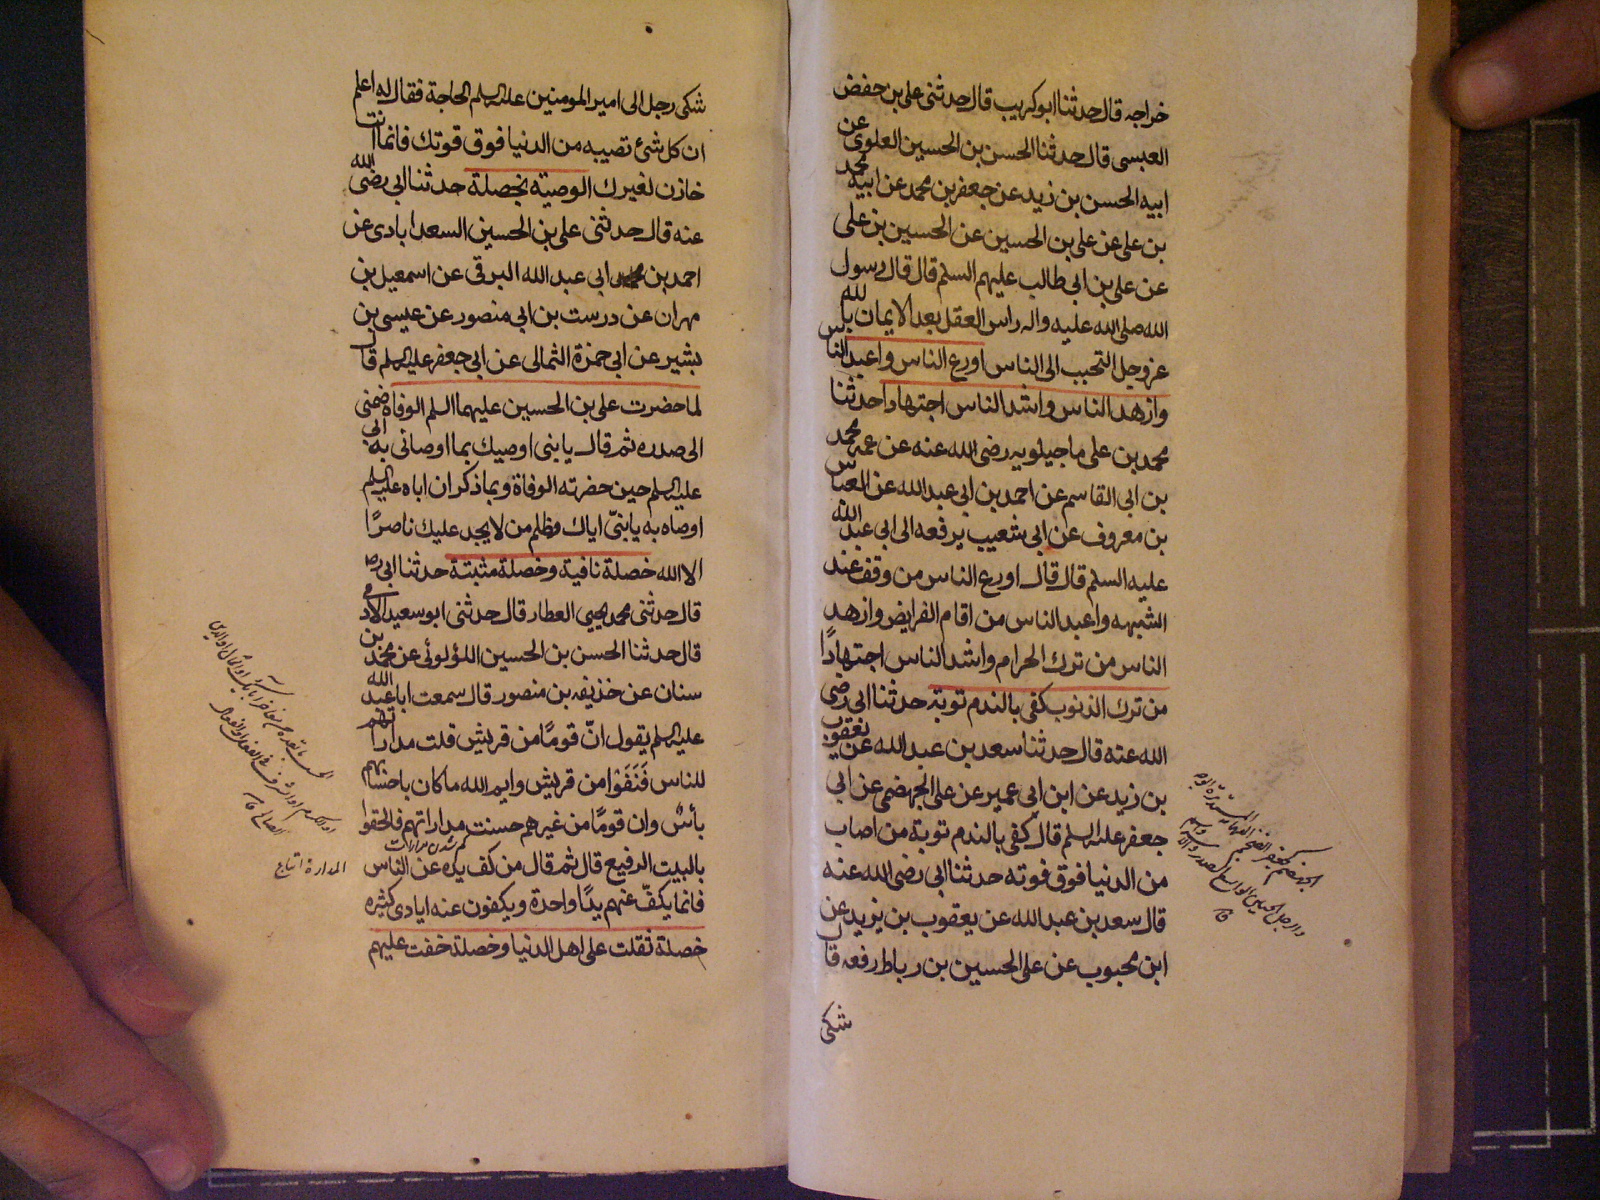 خراجه قال حدثنا ابو كريب قال حدثنى على بن حفض
العبسى قال حدثنا الحسن بن الحسين العلوى عن
ابيه الحسن بن زيد عن جعفر بن محمد عن ابيه محمد
بن على عن على بن الحسين عن الحسين بن على
عن على بن ابى طالب عليهم السلم قال قال رسول
الله صلى الله عليه واله راس العقل بعد الايمان بالله
عز وجل التحبب الى الناس اورع الناس واعبد الناس
وازهد الناس واشد الناس اجتهادا حدثنا
محمد بن على ماجيلويه رضى الله عنه عن عمه محمد
بن ابى القاسم عن احمد بن ابى عبد الله عن العباس
بن معروف عن ابى شعيب يرفعه الى ابى عبد الله
عليه السلم قال قال اورع الناس من وقف عند
الشبهه واعبد الناس من اقام الفرايض وازهد
الناس من ترك الحرام واشد الناس اجتهادًا
من ترك الذنوب كفى بالندم توبة حدثنا ابى رضى
الله عنه قال حدثنا سعد بن عبد الله عن يعقوب
بن زيد عن ابن ابى عمير عن على الجهضمى عن ابى
جعفر عليه السلم قال كفى بالندم توبة من اصاب
من الدنيا فوق قوته حدثنا ابى رضى الله عنه
قال سعد بن عبد الله عن يعقوب بن يزيد عن
ابن محبوب عن على الحسين بن رباط رفعه قال
شكى
شكى رجل الى امير المومنين عليه السلم الحاجة فقال له اعلم
ان كل شئ تصيبه من الدنيا فوق قوتك فانما انت
خازن لغيرك الوصية بخصلة حدثنا ابى رضى الله
عنه قال حدثنى على بن الحسين السعد ابادى عن
احمد بن ابى عبد الله البرقى عن اسمعيل بن
مهران عن درست بن ابى منصور عن عيسى بن
بشير عن ابى حمزة الثمالى عن ابى جعفر عليه السلم قال
لما حضرت على بن الحسين عليهما السلم الوفاة ضمنى
الى صدره ثم قال يا بنى اوصيك بما اوصانى به ابى
عليه السلم حين حضرته الوفاة وبما ذكر ان اباه عليه السلم
اوصاه به يا بنىّ اياك وظلم من لا يجد عليك ناصرًا
الا الله خصلة نافية وخصلة مثبتة حدثنا ابى ره
قال حدثنى محمد يحيى العطار قال حدثنى ابو سعيد الآدمى
قال حدثنا الحسن بن الحسين اللؤلوئى عن محمد بن
سنان عن خذيفه بن منصور قال سمعت ابا عبد الله
عليه السلم يقول انّ قومًا من قريش قلت مداراتهم
للناس فَنَفَوْا من قريش وايم الله ما كان باحسابهم
بأسٌ وان قومًا من غيرهم حسنت مداراتهم فالحقوا
بالبيت الرفيع قال ثم قال من كف يده عن الناس
فانما يكفّ عنهم يدًا واحدة ويكفون عنه ايادى كثيره
خصلة ثقلت على اهل الدنيا وخصلة خفت عليهم